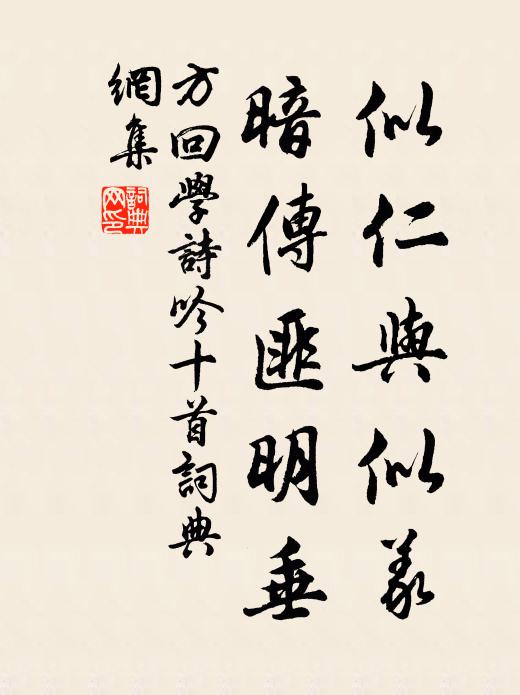 似仁與似义
暗傳匪明垂
方回學詩吟十首詞典
網集
詞典網印